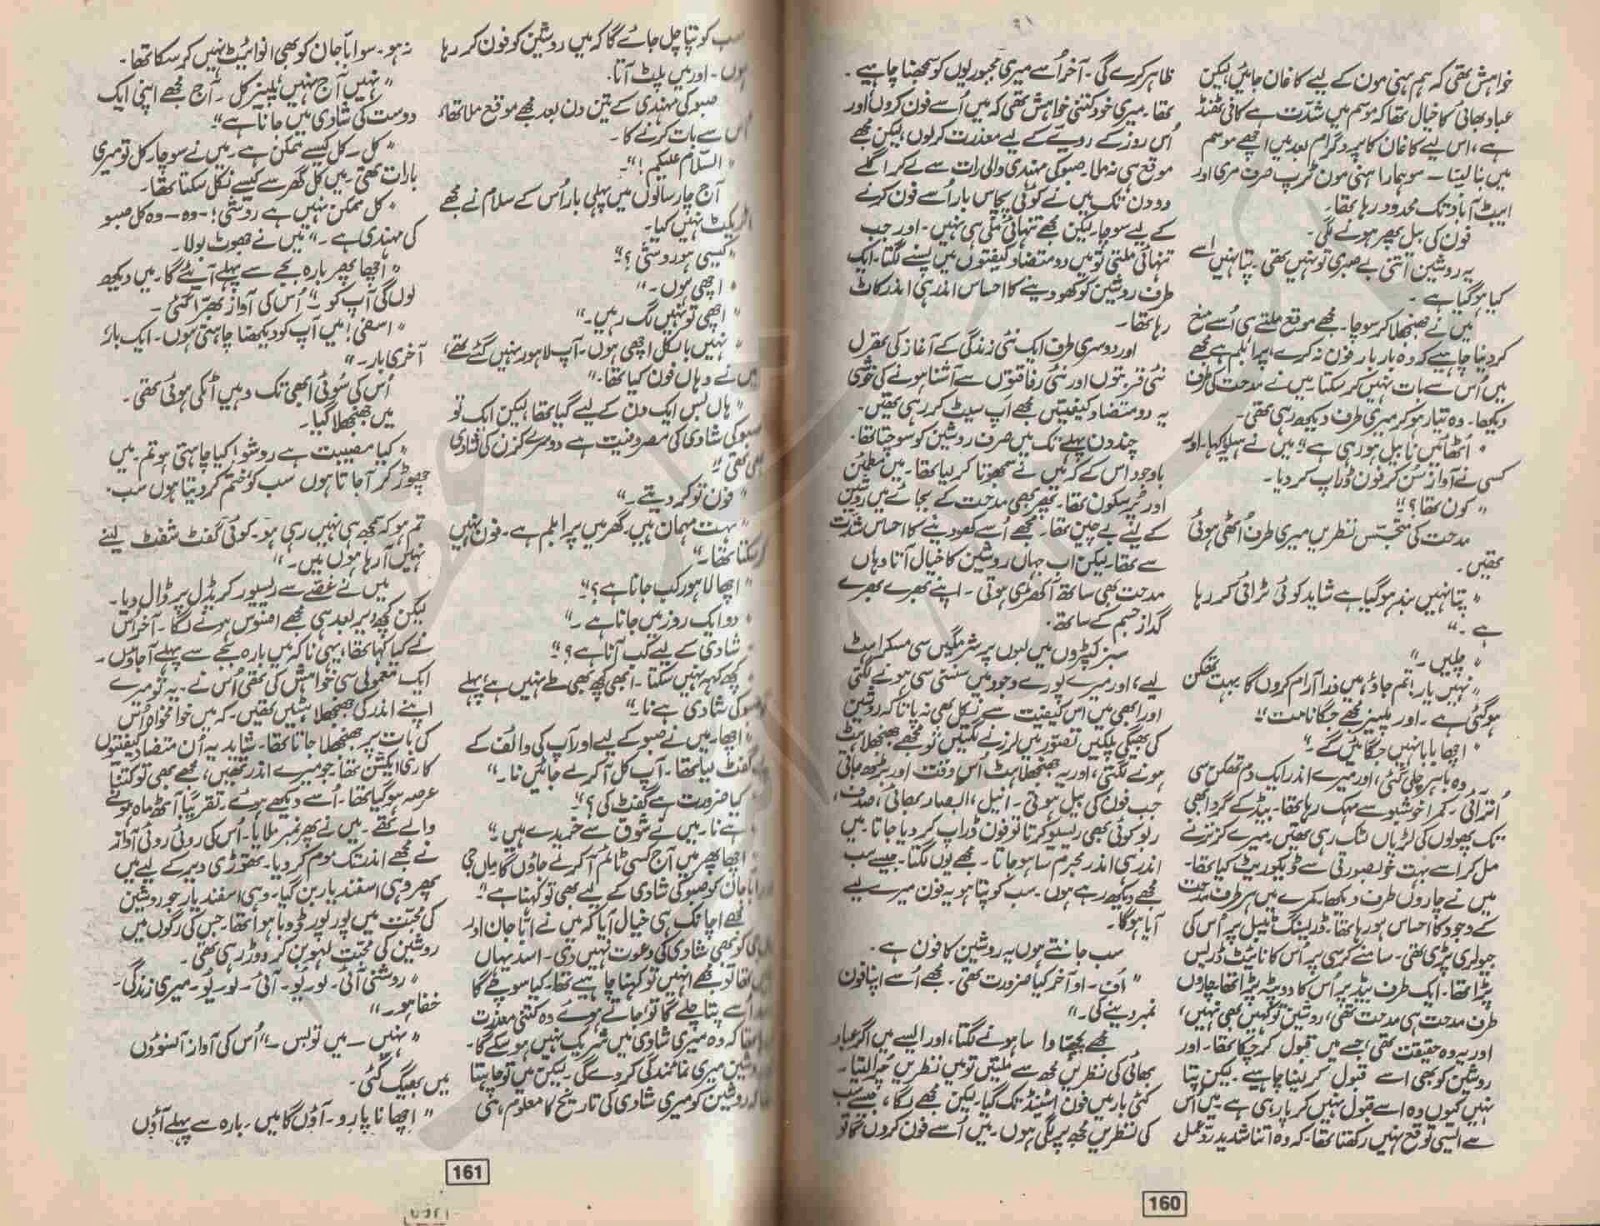 خواہش تھی کہ ہم ہنی مون کے لیے کاغان جائیں لیکن
عباد بھائی کا خیال تھا کہ موسم میں شدت ہے کافی ٹھنڈ
ہے، اس لیے کاغان کا پروگرام بعد میں اچھے موسم
میں بنا لینا — سو ہمارا ہنی مون ٹرپ صرف مری اور
ایبٹ آباد تک محدود رہا تھا۔
فون کی بیل پھر ہونے لگی۔
یہ روشین اتنی بے صبری تو نہیں تھی۔ پتا نہیں اسے
کیا ہو گیا ہے۔
میں نے جھنجھلا کر سوچا۔ مجھے موقع ملتے ہی اُسے منع
کر دینا چاہیے کہ وہ بار بار فون نہ کرے، پرابلم ہے مجھے
میں اُس سے بات نہیں کر سکتا۔ میں نے مدحت کی طرف
دیکھا۔ وہ تیار ہو کر میری طرف دیکھ رہی تھی۔
"اُٹھائیں نا بیل ہو رہی ہے" میں نے ہیلو کہا۔ اور
کسی نے آواز سُن کر فون ڈراپ کر دیا۔
"کون تھا؟"
مدحت کی متجسّس نظریں میری طرف اُٹھی ہوئی
تھیں۔
"پتا نہیں بند ہو گیا ہے شاید کوئی ٹرائی کر رہا
ہے۔"
"چلیں۔"
"نہیں یار! تم جاؤ میں ذرا آرام کروں گا بہت تھکن
ہو گئی ہے۔ اور پلیز مجھے جگانا مت"
"اچھا بابا نہیں جگائیں گے۔"
وہ باہر چلی گئی، اور میرے اندر ایک دم تھکن سی
اُتر آئی۔ کمرا خوشبو سے مہک رہا تھا۔ بیڈ کے گرد ابھی
تک پھولوں کی لڑیاں لٹک رہی تھیں، میرے کزنز نے
مل کر اسے بہت خوبصورتی سے ڈیکوریٹ کیا تھا۔
میں نے چاروں طرف دیکھا، کمرے میں ہر طرف مدحت
کے وجود کا احساس ہو رہا تھا۔ ڈریسنگ ٹیبل پر اُس کی
جیولری پڑی تھی۔ سامنے کرسی پر اُس کا نائیٹ ڈریس
پڑا تھا۔ ایک طرف بیڈ پر اُس کا دوپٹہ پڑا تھا، چاروں
طرف مدحت ہی مدحت تھی، روشین تو کہیں بھی نہیں،
اور یہ وہ حقیقت تھی، جسے میں قبول کر چکا تھا۔ اور
روشین کو بھی اسے قبول کر لینا چاہیے۔ لیکن پتا
نہیں کیوں وہ اسے قبول نہیں کر پا رہی ہے۔ میں اس
سے ایسی توقع نہیں رکھتا تھا۔ کہ وہ اتنا شدید ردّعمل
ظاہر کرے گی۔ آخر اُسے میری مجبوریوں کو سمجھنا چاہیے۔
تھا۔ میری خود کتنی خواہش تھی کہ میں اُسے فون کروں اور
اُس روز کے رویے کے لیے معذرت کر لوں، لیکن مجھے
موقع ہی نہ ملا۔ صبو کی مہندی والی رات سے لے کر اگلے
دو دن تک میں نے کوئی پچاس بار اُسے فون کرنے
کے لیے سوچا۔ لیکن مجھے تنہائی ملی ہی نہیں۔ اور جب
تنہائی ملتی تو میں دو متضاد کیفیتوں میں پسنے لگتا۔ ایک
طرف روشین کو کھو دینے کا احساس اندر ہی اندر کاٹ
رہا تھا۔
اور دوسری طرف ایک نئی زندگی کے آغاز کی تھرل
نئی قربتوں اور نئی رفاقتوں سے آشنا ہونے کی خوشی
یہ دو متضاد کیفیتیں مجھے اپ سیٹ کر رہی تھیں۔
چند دن پہلے تک میں صرف روشین کو سوچتا تھا۔
باوجود اس کے کہ میں نے سمجھوتا کر لیا تھا۔ میں مطمئن
اور پُرسکون تھا۔ پھر بھی مدحت کے بجائے میں روشین
کے لیے بے چین تھا۔ مجھے اُسے کھو دینے کا احساس شدت
سے تھا۔ لیکن اب جہاں روشین کا خیال آتا وہاں
مدحت بھی ساتھ آ کھڑی ہوتی۔ اپنے بھرے بھرے
گداز جسم کے ساتھ۔
سبز کپڑوں میں لبوں پر شرمگیں سی مسکراہٹ
لیے، اور میرے پورے وجود میں سنسنی سی ہونے لگتی
اور ابھی میں اس کیفیت سے نکل بھی نہ پاتا کہ روشین
کی بھیگی پلکیں تصور میں لرزنے لگتیں تو مجھے جھنجھلاہٹ
ہونے لگتی، اور یہ جھنجھلاہٹ اُس وقت اور بڑھ جاتی
جب فون کی بیل ہوتی۔ انیل، ابصار بھائی، صدف،
ربو کوئی بھی ریسیو کرتا تو فون ڈراپ کر دیا جاتا۔ میں
اندر ہی اندر مجرم سا ہو جاتا۔ مجھے یوں لگتا۔ جیسے سب
مجھے دیکھ رہے ہوں۔ سب کو پتا ہو یہ فون میرے لیے
آیا ہو گا۔
سب جانتے ہوں یہ روشین کا فون ہے۔
"اُف۔ او آخر کیا ضرورت تھی۔ مجھے اُسے اپنا فون
نمبر دینے کی۔"
مجھے پچھتاوا سا ہونے لگتا، اور ایسے میں اگر عباد
بھائی کی نظریں مجھ سے ملتیں تو میں نظریں چُرا لیتا۔
کئی بار میں فون اسٹینڈ تک گیا۔ لیکن مجھے لگا، جیسے سب
کی نظریں مجھ پر لگی ہوں۔ میں اُسے فون کروں گا تو
160
سب کو پتا چل جائے گا کہ میں روشین کو فون کر رہا
ہوں۔ اور میں پلٹ آتا۔
صبو کی مہندی کے تین دن بعد مجھے موقع ملا تھا،
اُس سے بات کرنے کا۔
"السّلام علیکم!"
آج چار سالوں میں پہلی بار اُس کے سلام نے مجھے
اٹریکٹ نہیں کیا۔
"کیسی ہو روشی؟"
"اچھی ہوں۔"
"اچھی تو نہیں لگ رہیں۔"
"نہیں بالکل اچھی ہوں۔ آپ لاہور نہیں گئے تھے،
میں نے وہاں فون کیا تھا۔"
"ہاں بس ایک دن کے لیے گیا تھا لیکن ایک تو
صبو کی شادی کی مصروفیت ہے دوسرے کزن کی شادی
بھی تھی"
"فون تو کر دیتے۔"
"بہت مہمان ہیں۔ گھر میں پرابلم ہے۔ فون نہیں
کر سکتا تھا۔"
"اچھا لاہور کب جانا ہے؟"
"دو ایک روز میں جانا ہے۔"
"شادی کے لیے کب آنا ہے؟"
"کچھ کہہ نہیں سکتا۔ ابھی کچھ بھی طے نہیں ہے، پہلے
صبو کی شادی ہے نا۔"
"اچھا، میں نے صبو کے لیے اور آپ کی وائف کے
گفٹ لیا تھا۔ آپ کل آ کر لے جائیں نا۔"
"کیا ضرورت ہے گفٹ کی؟"
"ہے نا۔ میں نے شوق سے خریدے ہیں"
"اچھا پھر میں آج کسی ٹائم آ کر لے جاؤں گا ماں جی
اور ابا جان کو صبو کی شادی کے لیے بھی تو کہنا ہے"
مجھے اچانک ہی خیال آیا کہ میں نے ابّا جان اور
ماں جی کو بھی شادی کی دعوت نہیں دی۔ اسد یہاں
نہیں تھا تو مجھے انہیں تو کہنا چاہیے تھا۔ کیا سوچے گا
اسد اُسے پتا چلے گا تو؟ جاتے ہوئے وہ کتنی معذرت
کر رہا تھا کہ وہ میری شادی میں شریک نہیں ہو سکے گا۔
روشین میری نمائندگی کر دے گی۔ لیکن میں تو چاہتا
تھا کہ روشین کو میری شادی کی تاریخ کا معلوم ہی
نہ ہو۔ سو ابا جان کو بھی انوائیٹ نہیں کر سکا تھا۔
"نہیں آج نہیں پلیز کل۔ آج مجھے اپنی ایک
دوست کی شادی میں جانا ہے"
"کل۔ کل کیسے ممکن ہے۔ میں نے سوچا، کل تو میری
بارات تھی۔ میں کل گھر سے کیسے نکل سکتا تھا۔
"کل ممکن نہیں ہے روشی! — وہ — وہ کل صبو
کی مہندی ہے۔" میں نے جھوٹ بولا۔
"اچھا پھر بارہ بجے سے پہلے آیئے گا۔ میں دیکھ
لوں گی آپ کو۔" اُس کی آواز بھرّا گئی۔
"اسفی! میں آپ کو دیکھنا چاہتی ہوں۔ ایک بار،
آخری بار۔"
اُس کی سُوئی ابھی تک وہیں اٹکی ہوئی تھی۔
میں جھنجھلا گیا۔
"کیا مصیبت ہے روشو! کیا چاہتی ہو تم۔ میں
چھوڑ کر آ جاتا ہوں سب کو ختم کر دیتا ہوں سب۔
تم ہو کہ سمجھ ہی نہیں رہی ہو۔ کوئی گفٹ شفٹ لینے
نہیں آ رہا ہوں میں۔"
میں نے غصّے سے ریسیور کریڈل پر ڈال دیا۔
لیکن کچھ دیر بعد ہی مجھے افسوس ہونے لگا۔ آخر اُس
نے کیا کہا تھا، یہی نا کہ میں بارہ بجے سے پہلے آ جاؤں۔
ایک معمولی سی خواہش کی تھی اُس نے۔ یہ تو میرے
اپنے اندر کی جھنجھلاہٹیں تھیں۔ کہ میں خوامخواہ اُس
کی بات پر جھنجھلا جاتا تھا۔ شاید یہ اُن متضاد کیفیتوں
کا ری ایکشن تھا۔ جو میرے اندر تھیں، مجھے بھی تو کتنا
عرصہ ہو گیا تھا۔ اُسے دیکھے ہوئے۔ تقریباً آٹھ ماہ ہونے
والے تھے۔ میں نے پھر نمبر ملایا۔ اُس کی روئی روئی آواز
نے مجھے اندر تک موم کر دیا۔ تھوڑی دیر کے لیے میں
پھر وہی اسفند یار بن گیا۔ وہی اسفند یار جو روشین
کی محبّت میں پور پور ڈوبا ہوا تھا۔ جس کی رگوں میں
روشین کی محبّت لہو بن کر دوڑ رہی تھی۔
"روشنی آئی۔ لَو۔ یُو۔ آئی۔ لَو۔ یُو۔ میری زندگی۔
خفا ہو۔"
"نہیں — میں تو بس —" اُس کی آواز آنسوؤں
میں بھیگ گئی۔
"اچھا نا یار رو۔ آؤں گا میں۔ بارہ سے پہلے آؤں
161